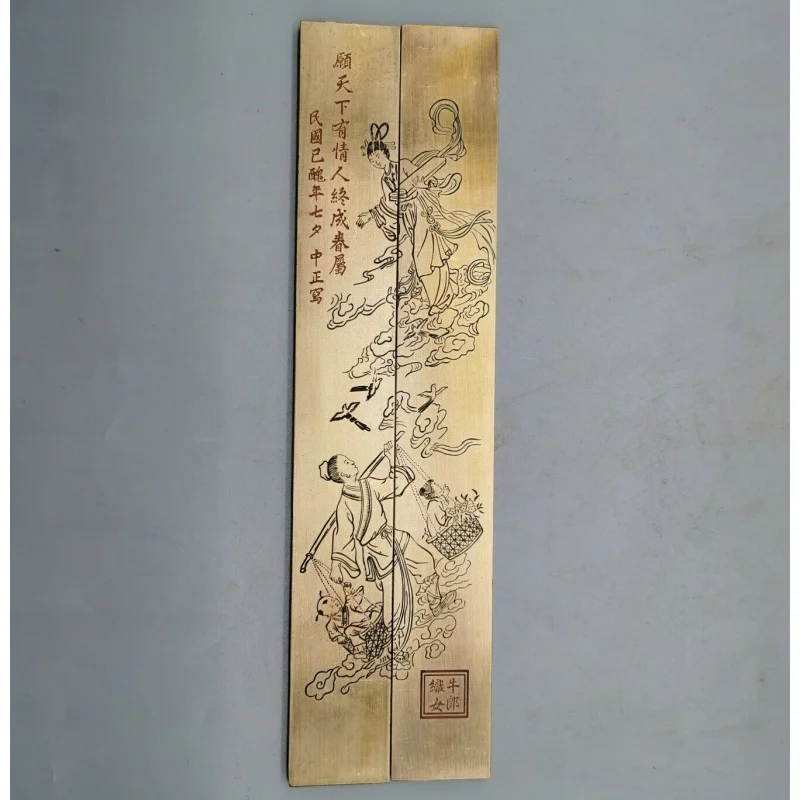 願天下有情人終成眷屬
民國己醜年七夕 中正寫
牛郎
織女